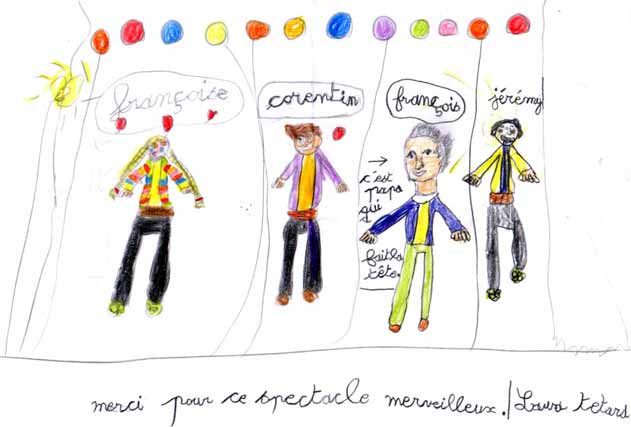 françoise
corentin
franç
ois
jérémy
c'est
papa
qui
fait la
tête.
merci pour ce spectacle merveilleux. / Laura